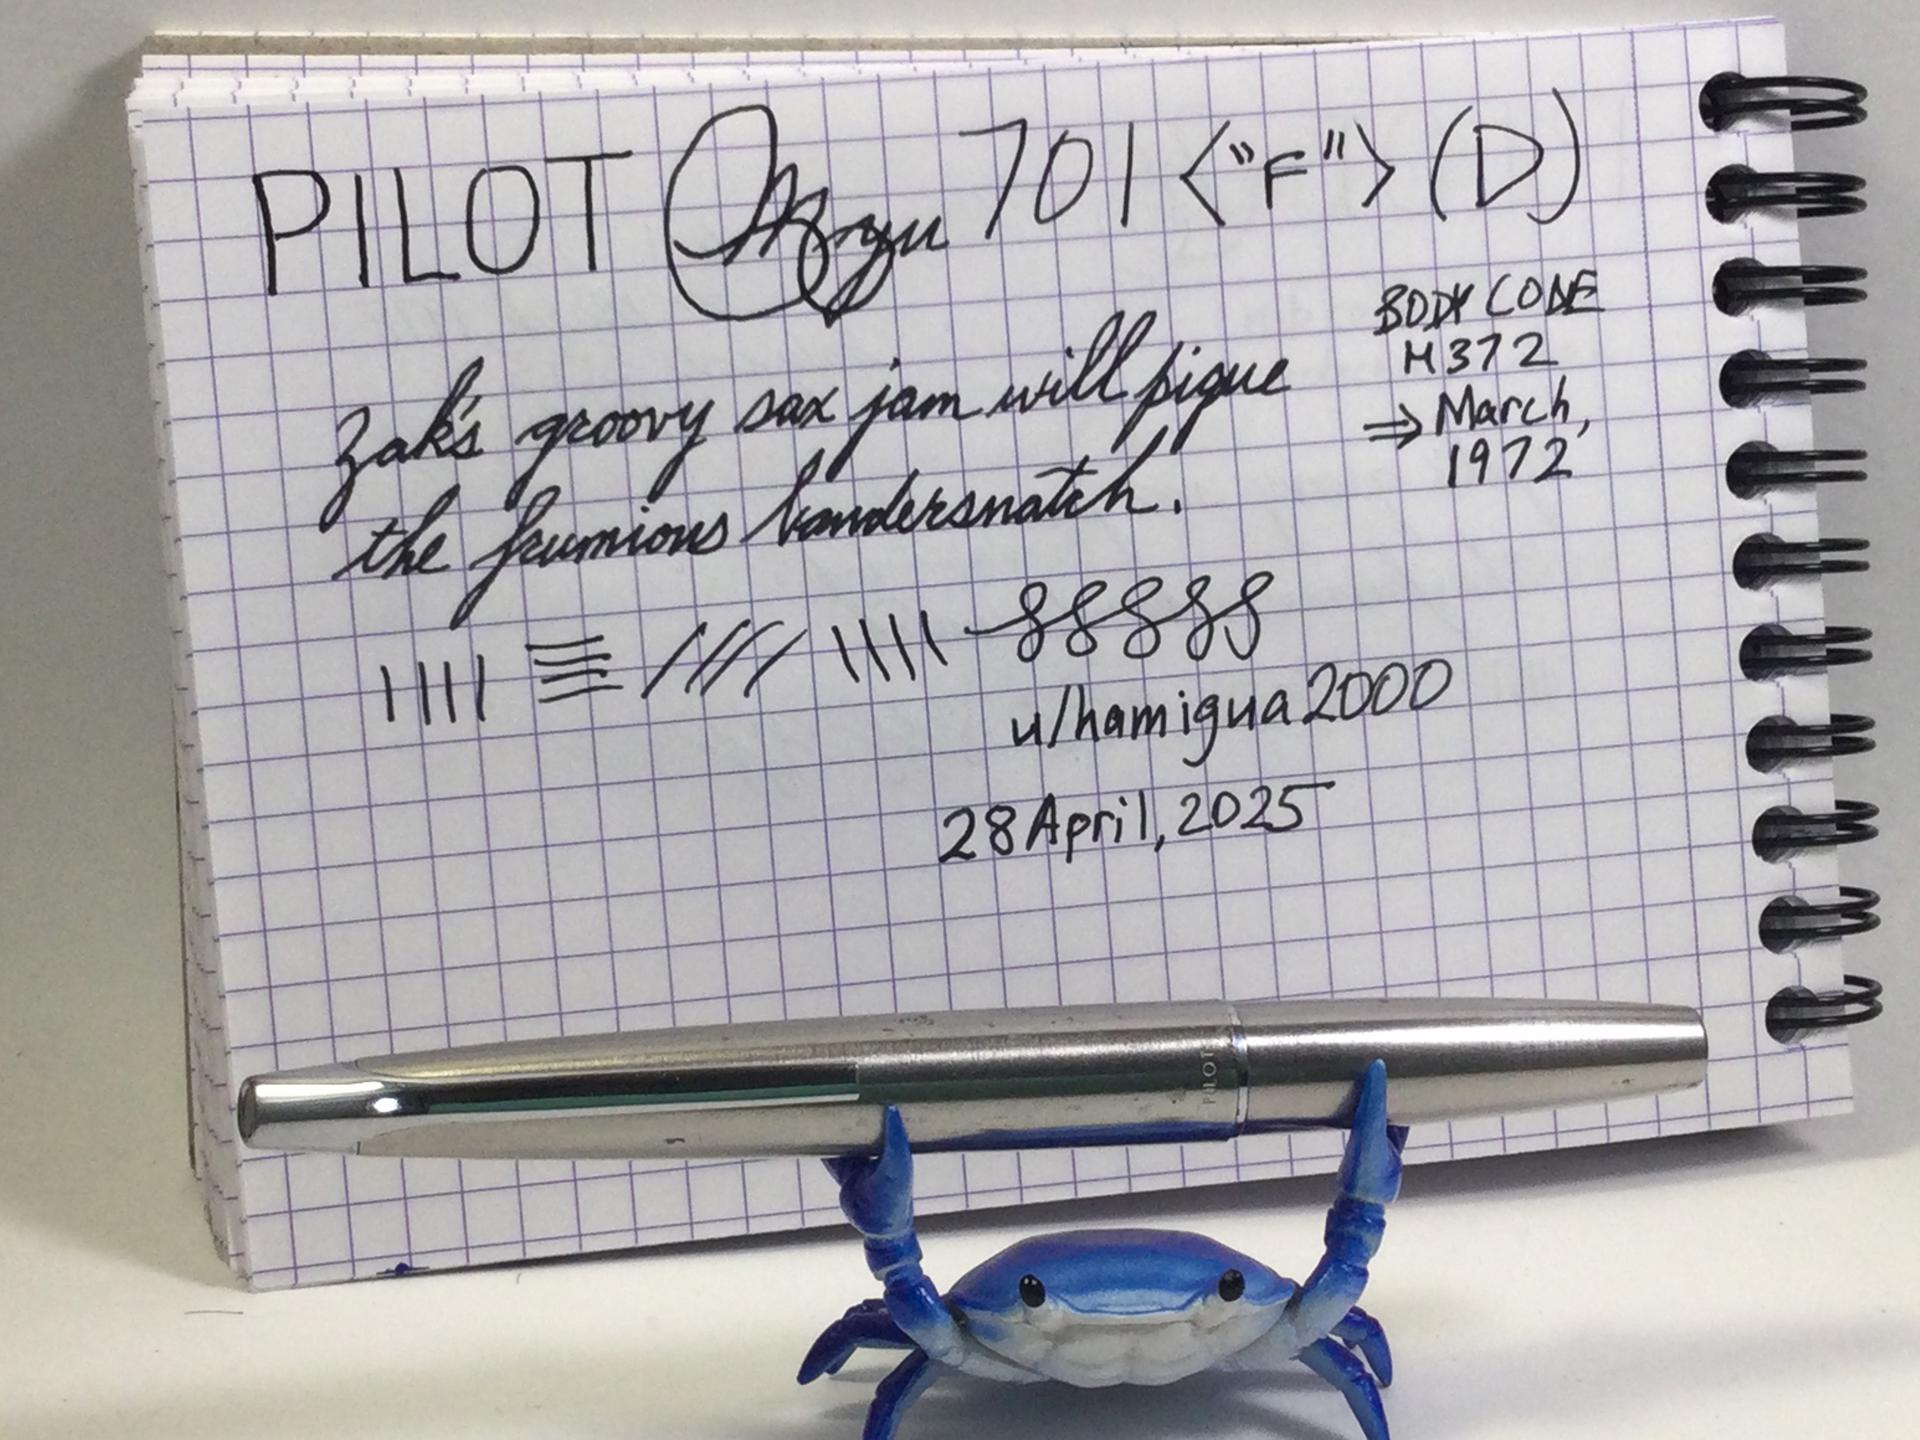 PILOT Myu 701 <"F"> (D)
BODY CODE
H372
⇒ March,
1972
Zak's groovy sax jam will pique
the frumious bandersnatch.
u/hamigua2000
28 April, 2025
PILOT